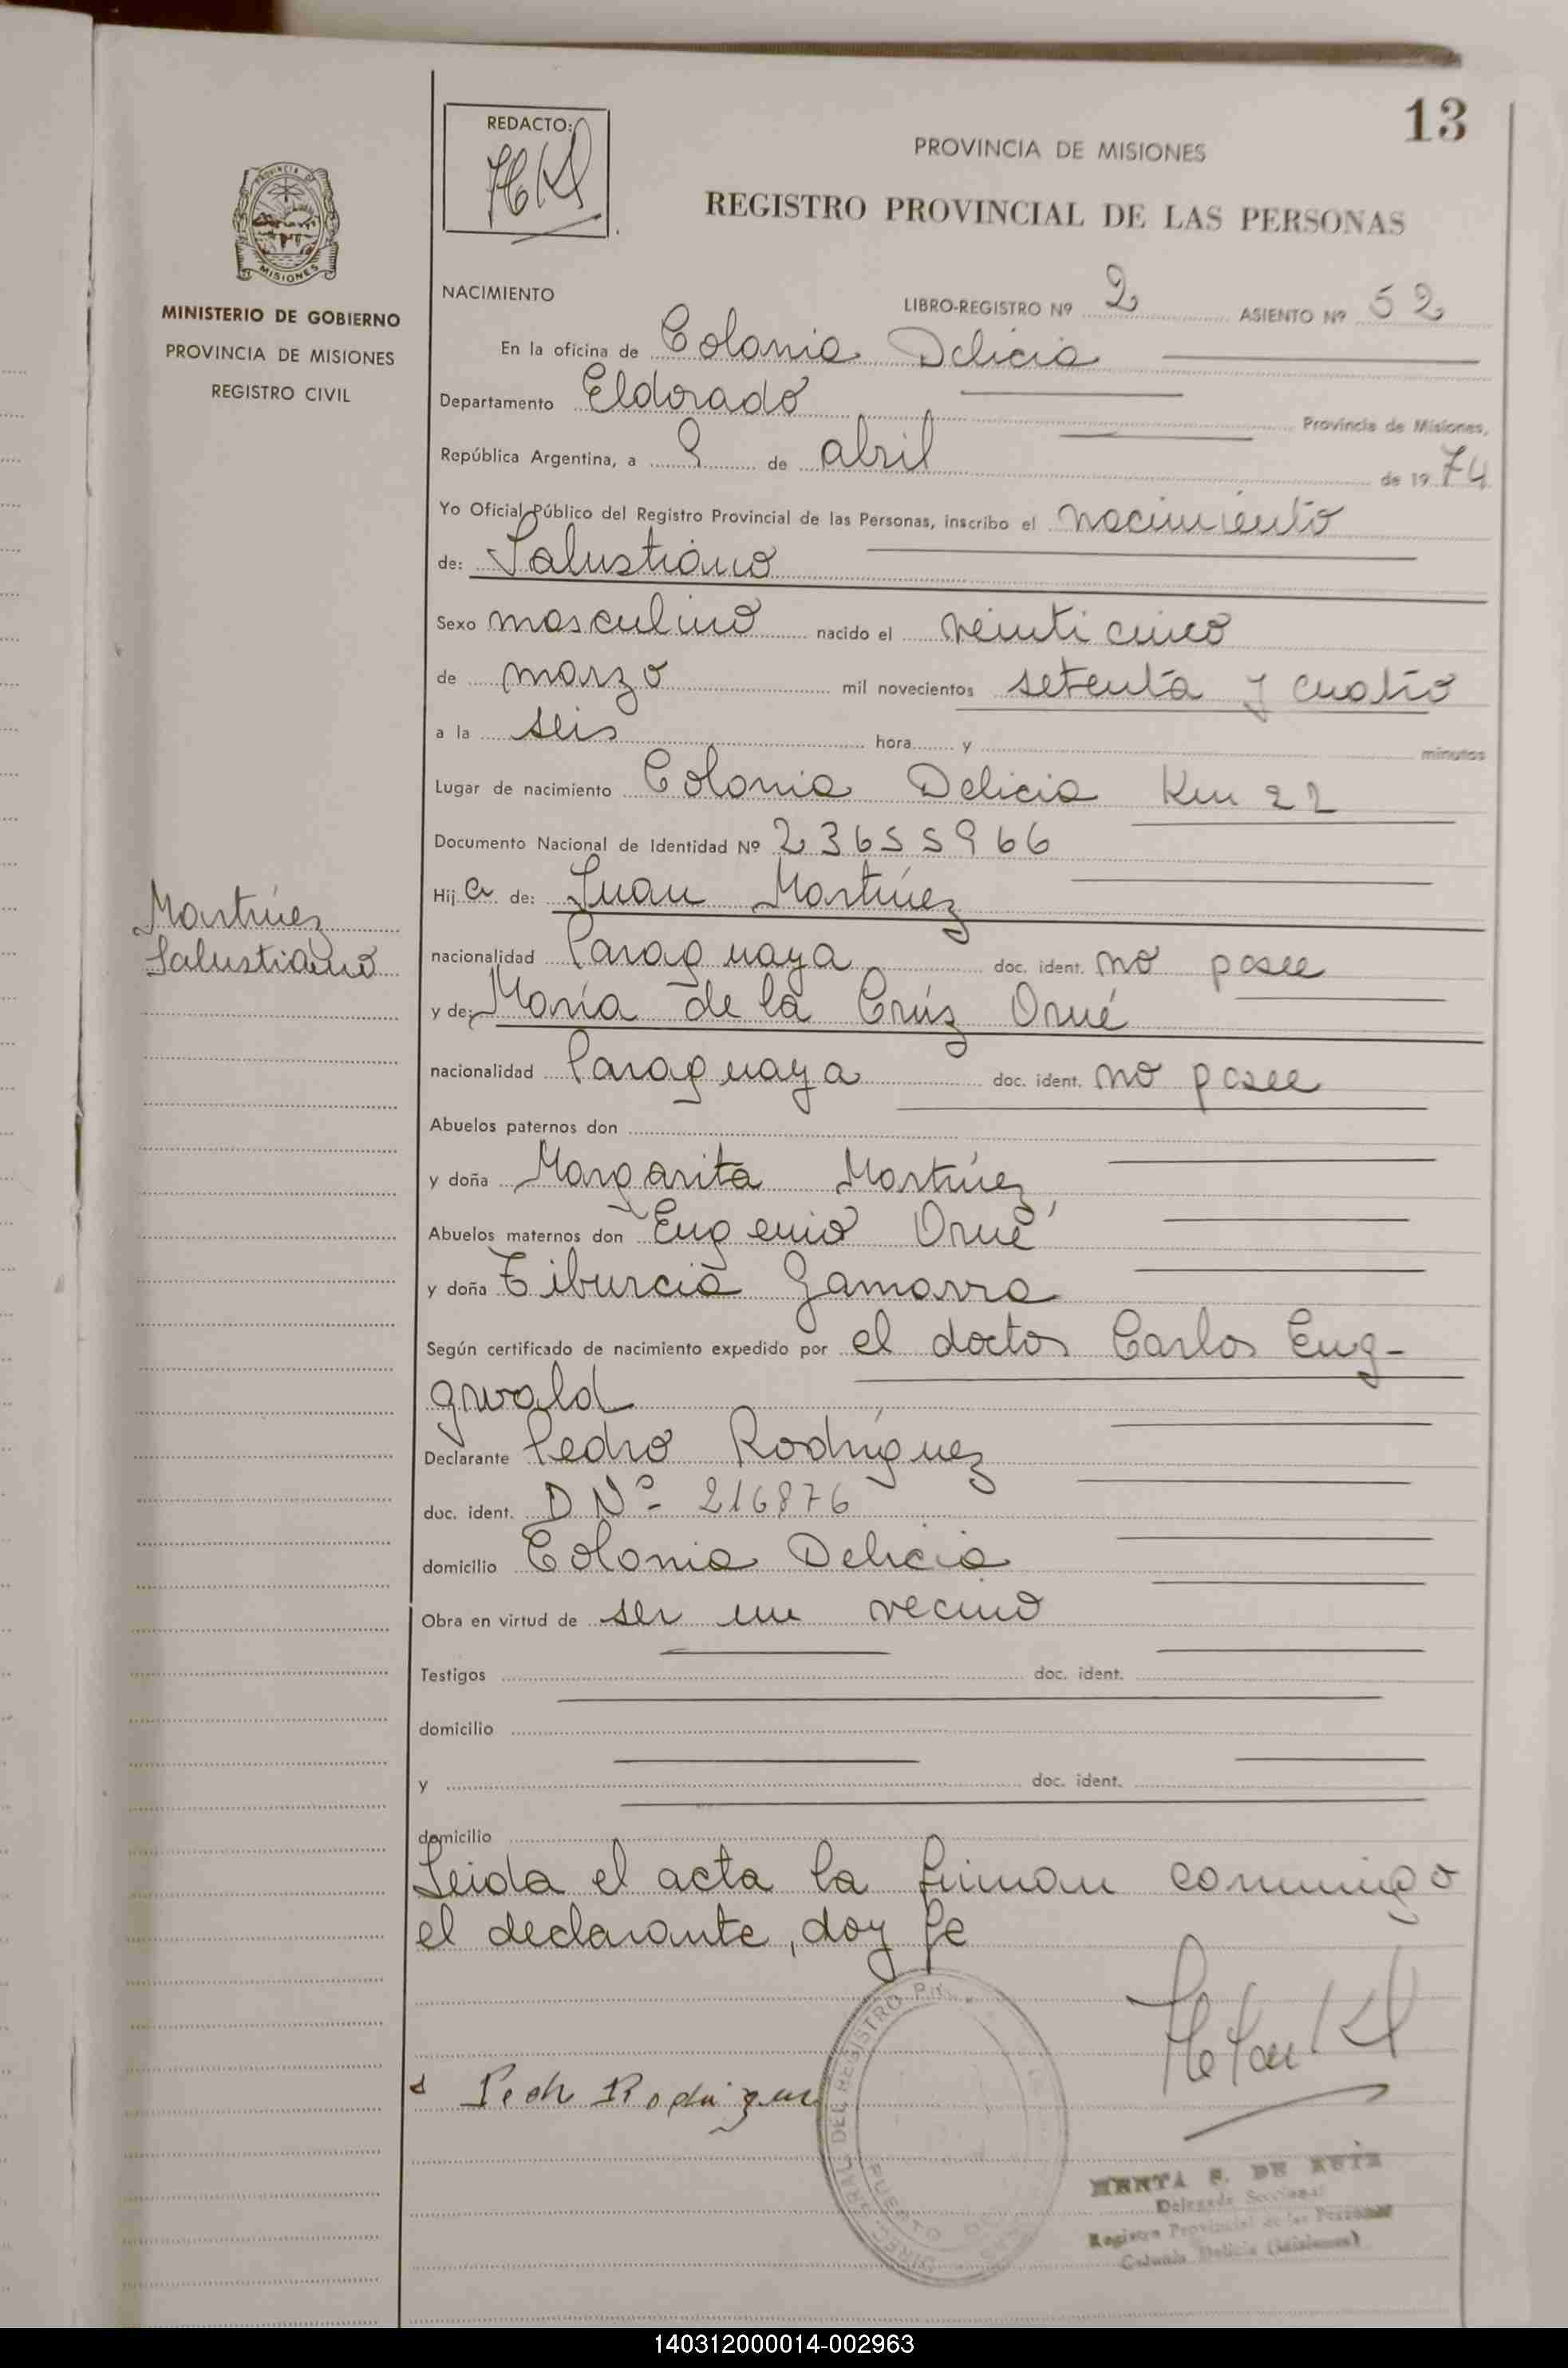 13
REDACTO:
PROVINCIA DE MISIONES
REGISTRO PROVINCIAL DE LAS PERSONAS
PROVINCIA DE
MISIONES
MINISTERIO DE GOBIERNO
PROVINCIA DE MISIONES
REGISTRO CIVIL
NACIMIENTO LIBRO-REGISTRO Nº 2 ASIENTO Nº 52
En la oficina de Colonia Delicia
Departamento Eldorado Provincia de Misiones,
República Argentina, a 9 de abril de 1974
Yo Oficial Público del Registro Provincial de las Personas, inscribo el nacimiento
de: Salustiano
Sexo masculino nacido el veinti cinco
de marzo mil novecientos setenta y cuatro
a la seis hora y minutos
Lugar de nacimiento Colonia Delicia Km 22
Documento Nacional de Identidad Nº 23655966
Hij a de: Juan Martínez
Martínez
Salustiano
nacionalidad Paraguaya doc. ident. no posee
y de: María de la Crúz Orué
nacionalidad Paraguaya doc. ident. no posee
Abuelos paternos don
y doña Margarita Martínez
Abuelos maternos don Eugenio Orué
y doña Tiburcia Gamarra
Según certificado de nacimiento expedido por el doctor Carlos Eug-
gwald
Declarante Pedro Rodríguez
doc. ident. D Nº- 216876
domicilio Colonia Delicia
Obra en virtud de ser un vecino
Testigos doc. ident.
domicilio
y doc. ident.
domicilio
Leida el acta la firman conmigo
el declarante, doy fe
Pedr Rodriguez
DEL REGISTRO
PUERTO
DE RUIZ
Delegada Seccional
Registro Provincial de las Personas
Colonia Delicia (Misiones)
140312000014-002963